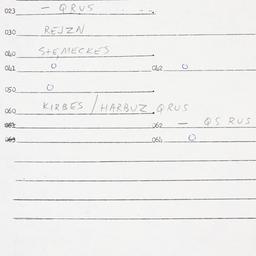 023 - QRUS
030 REJZN
040 STEMECKES
041 O 042 O
050 O
060 KIRBES / HARBUZ, QRUS
062 - QS RUS
063 064 O